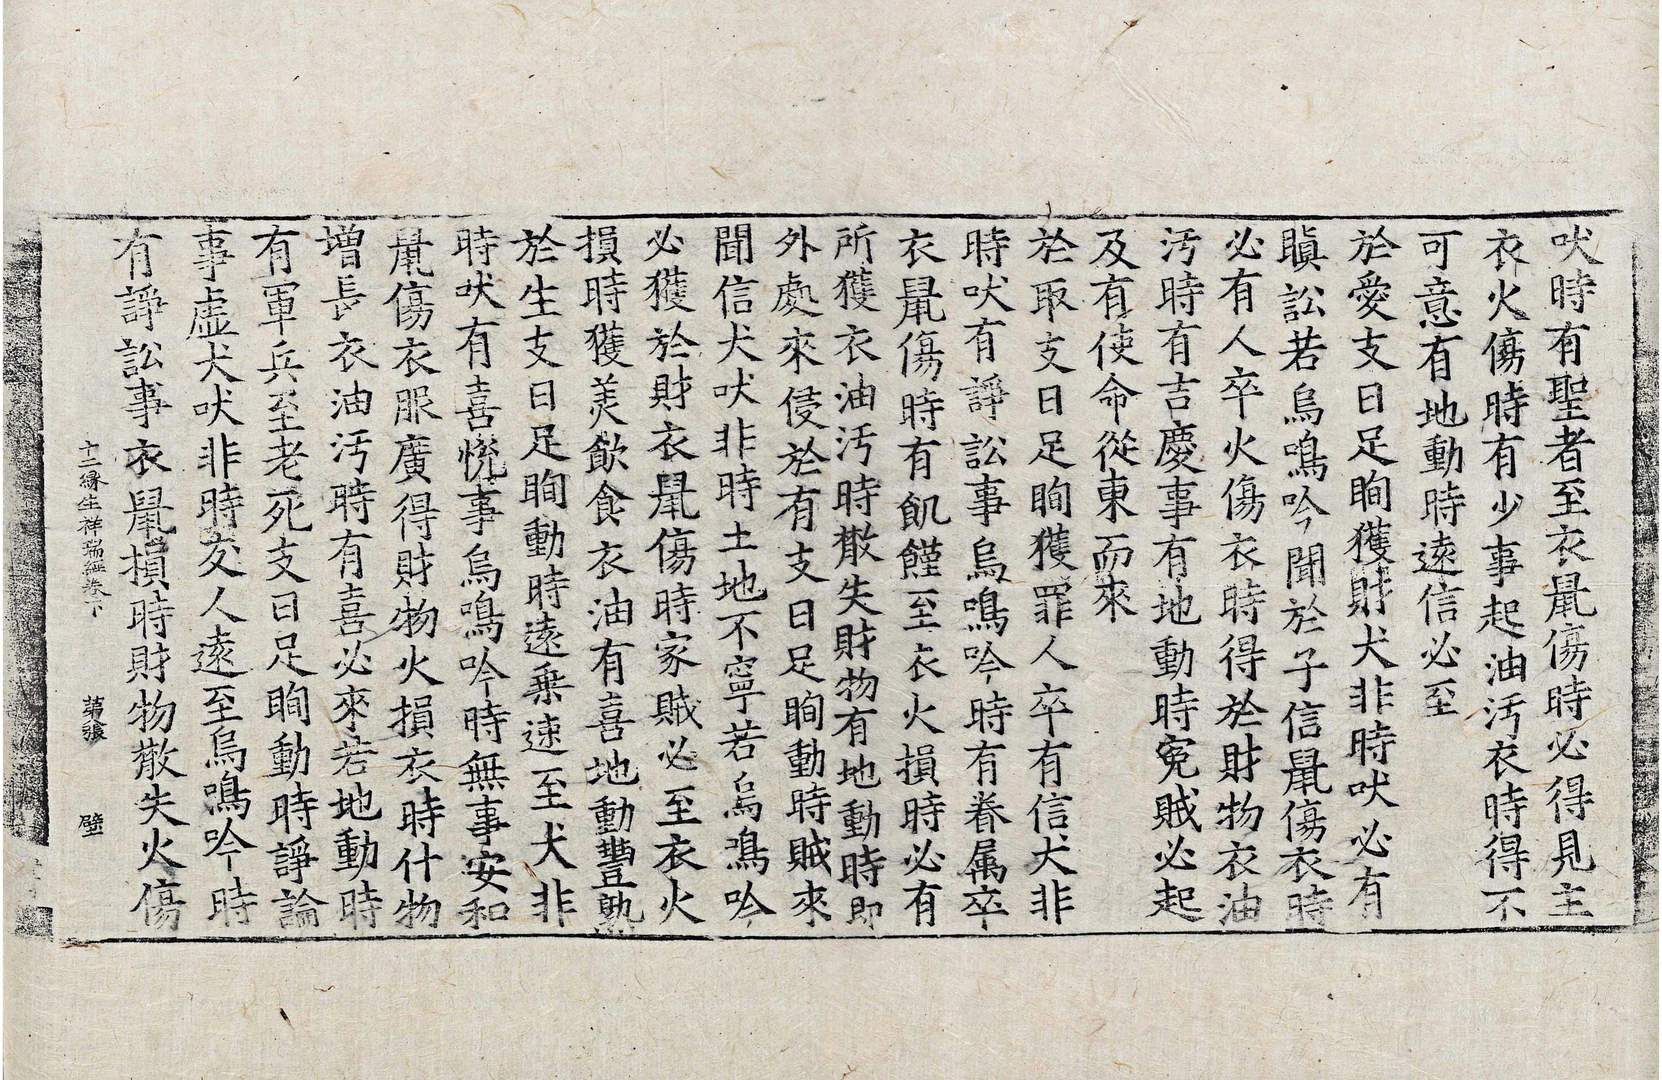 吠時有聖者至衣鼠傷時必得見主
衣火傷時有少事起油汚衣時得不
可意有地動時遠信必至
於愛支日足眴獲財犬非時吠必有
瞋訟若烏鳴吟聞於子信鼠傷衣時
必有人卒火傷衣時得於財物衣油
汚時有吉慶事有地動時寃賊必起
及有使命從東而來
於取支日足眴獲罪人卒有信犬非
時吠有諍訟事烏鳴吟時有眷属卒
衣鼠傷時有飢饉至衣火損時必有
所獲衣油汚時散失財物有地動時即
外處來侵於有支日足眴動時賊來
聞信犬吠非時土地不寧若烏鳴吟
必獲於財衣鼠傷時家賊必至衣火
損時獲羙飲食衣油有喜地動豊熟
於生支日足眴動時遠乗速至犬非
時吠有喜悅事烏鳴吟時無事安和
鼠傷衣服廣得財物火損衣時什物
增長衣油汚時有喜必來若地動時
有軍兵至老死支日足眴動時諍論
事虛犬吠非時交人遠至烏鳴吟時
有諍訟事衣鼠損時財物散失火傷
十二緣生祥瑞經卷下 第 張 壁